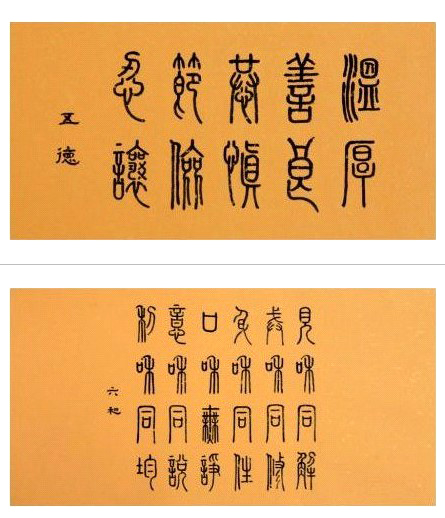 溫厚
善良
恭慎
節儉
忍讓
五德
見和同解
戒和同修
身和同住
口和無諍
意和同說
利和同均
六和